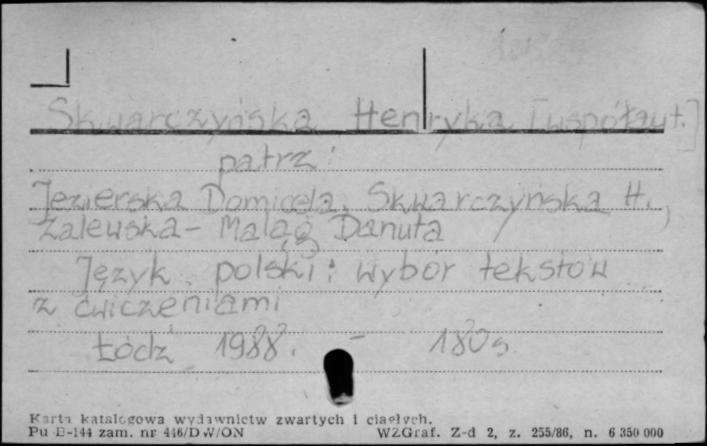 Skwarczyńska Henryka [współaut.]
patrz:
Jezierska Domicela, Skwarczyńska H.,
Zalewska-Maląg Danuta
Język polski: wybór tekstów
z ćwiczeniami
Łódź 1988. - 180 s
Karta katalogowa wydawnictw zwartych i ciągłych.
Pu B-144 zam. nr 446/DW/ON WZGraf. Z-d 2, z. 255/86, n. 6 350 000